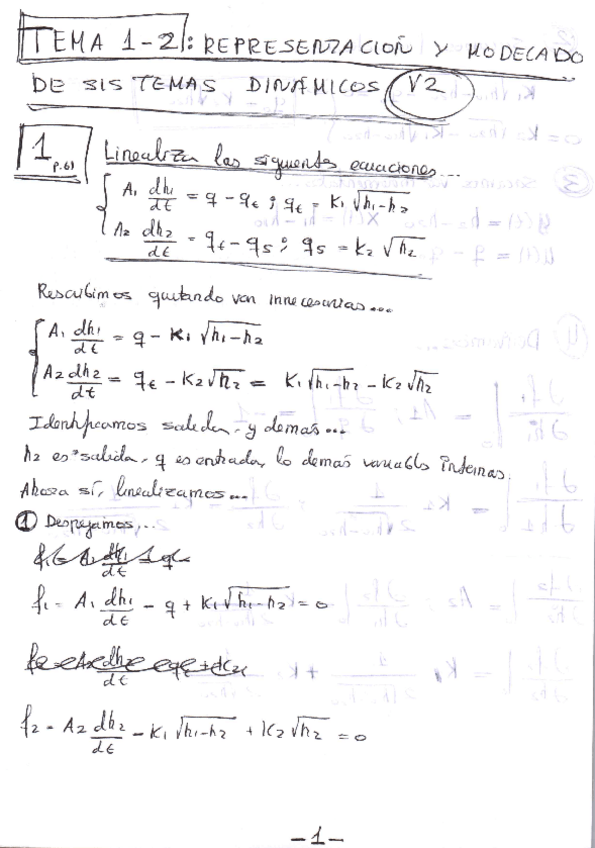 TEMA 1-2: REPRESENTACIÓN Y MODELADO
DE SISTEMAS DINÁMICOS V2
1 p.61 Linealiza las siguientes ecuaciones...
A1 dh1/dt = q - qt ; qt = K1 √(h1-h2)
A2 dh2/dt = qt - qs ; qs = K2 √h2
Rescribimos quitando var innecesarias...
A1 dh1/dt = q - K1 √(h1-h2)
A2 dh2/dt = qt - K2√h2 = K1√(h1-h2) - K2√h2
Identificamos salidas, y demás...
h2 es salida, q es entrada, lo demás variables internas.
Ahora sí, linealizamos...
① Despejamos...
f1 = A1 dh1/dt - q + K1√(h1-h2) = 0
f2 = A2 dh2/dt - K1 √(h1-h2) + K2 √h2 = 0
-1-